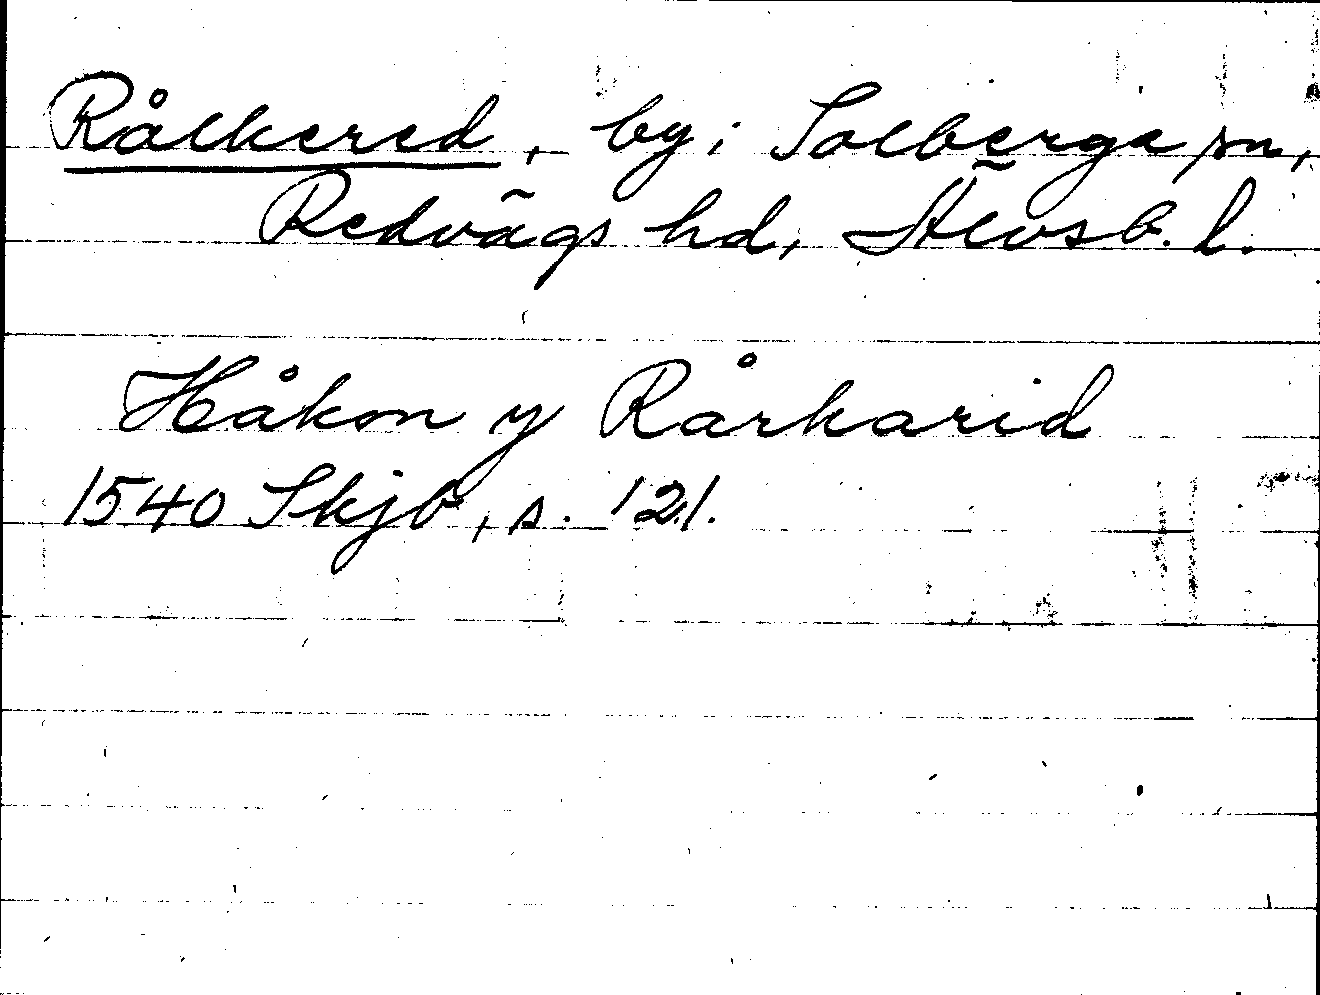 Rålkered, by; Solberga sn,
Redvägs hd, Älvsb. l.
Håkon y Rårkarid
1540 Skjb, s. 121.